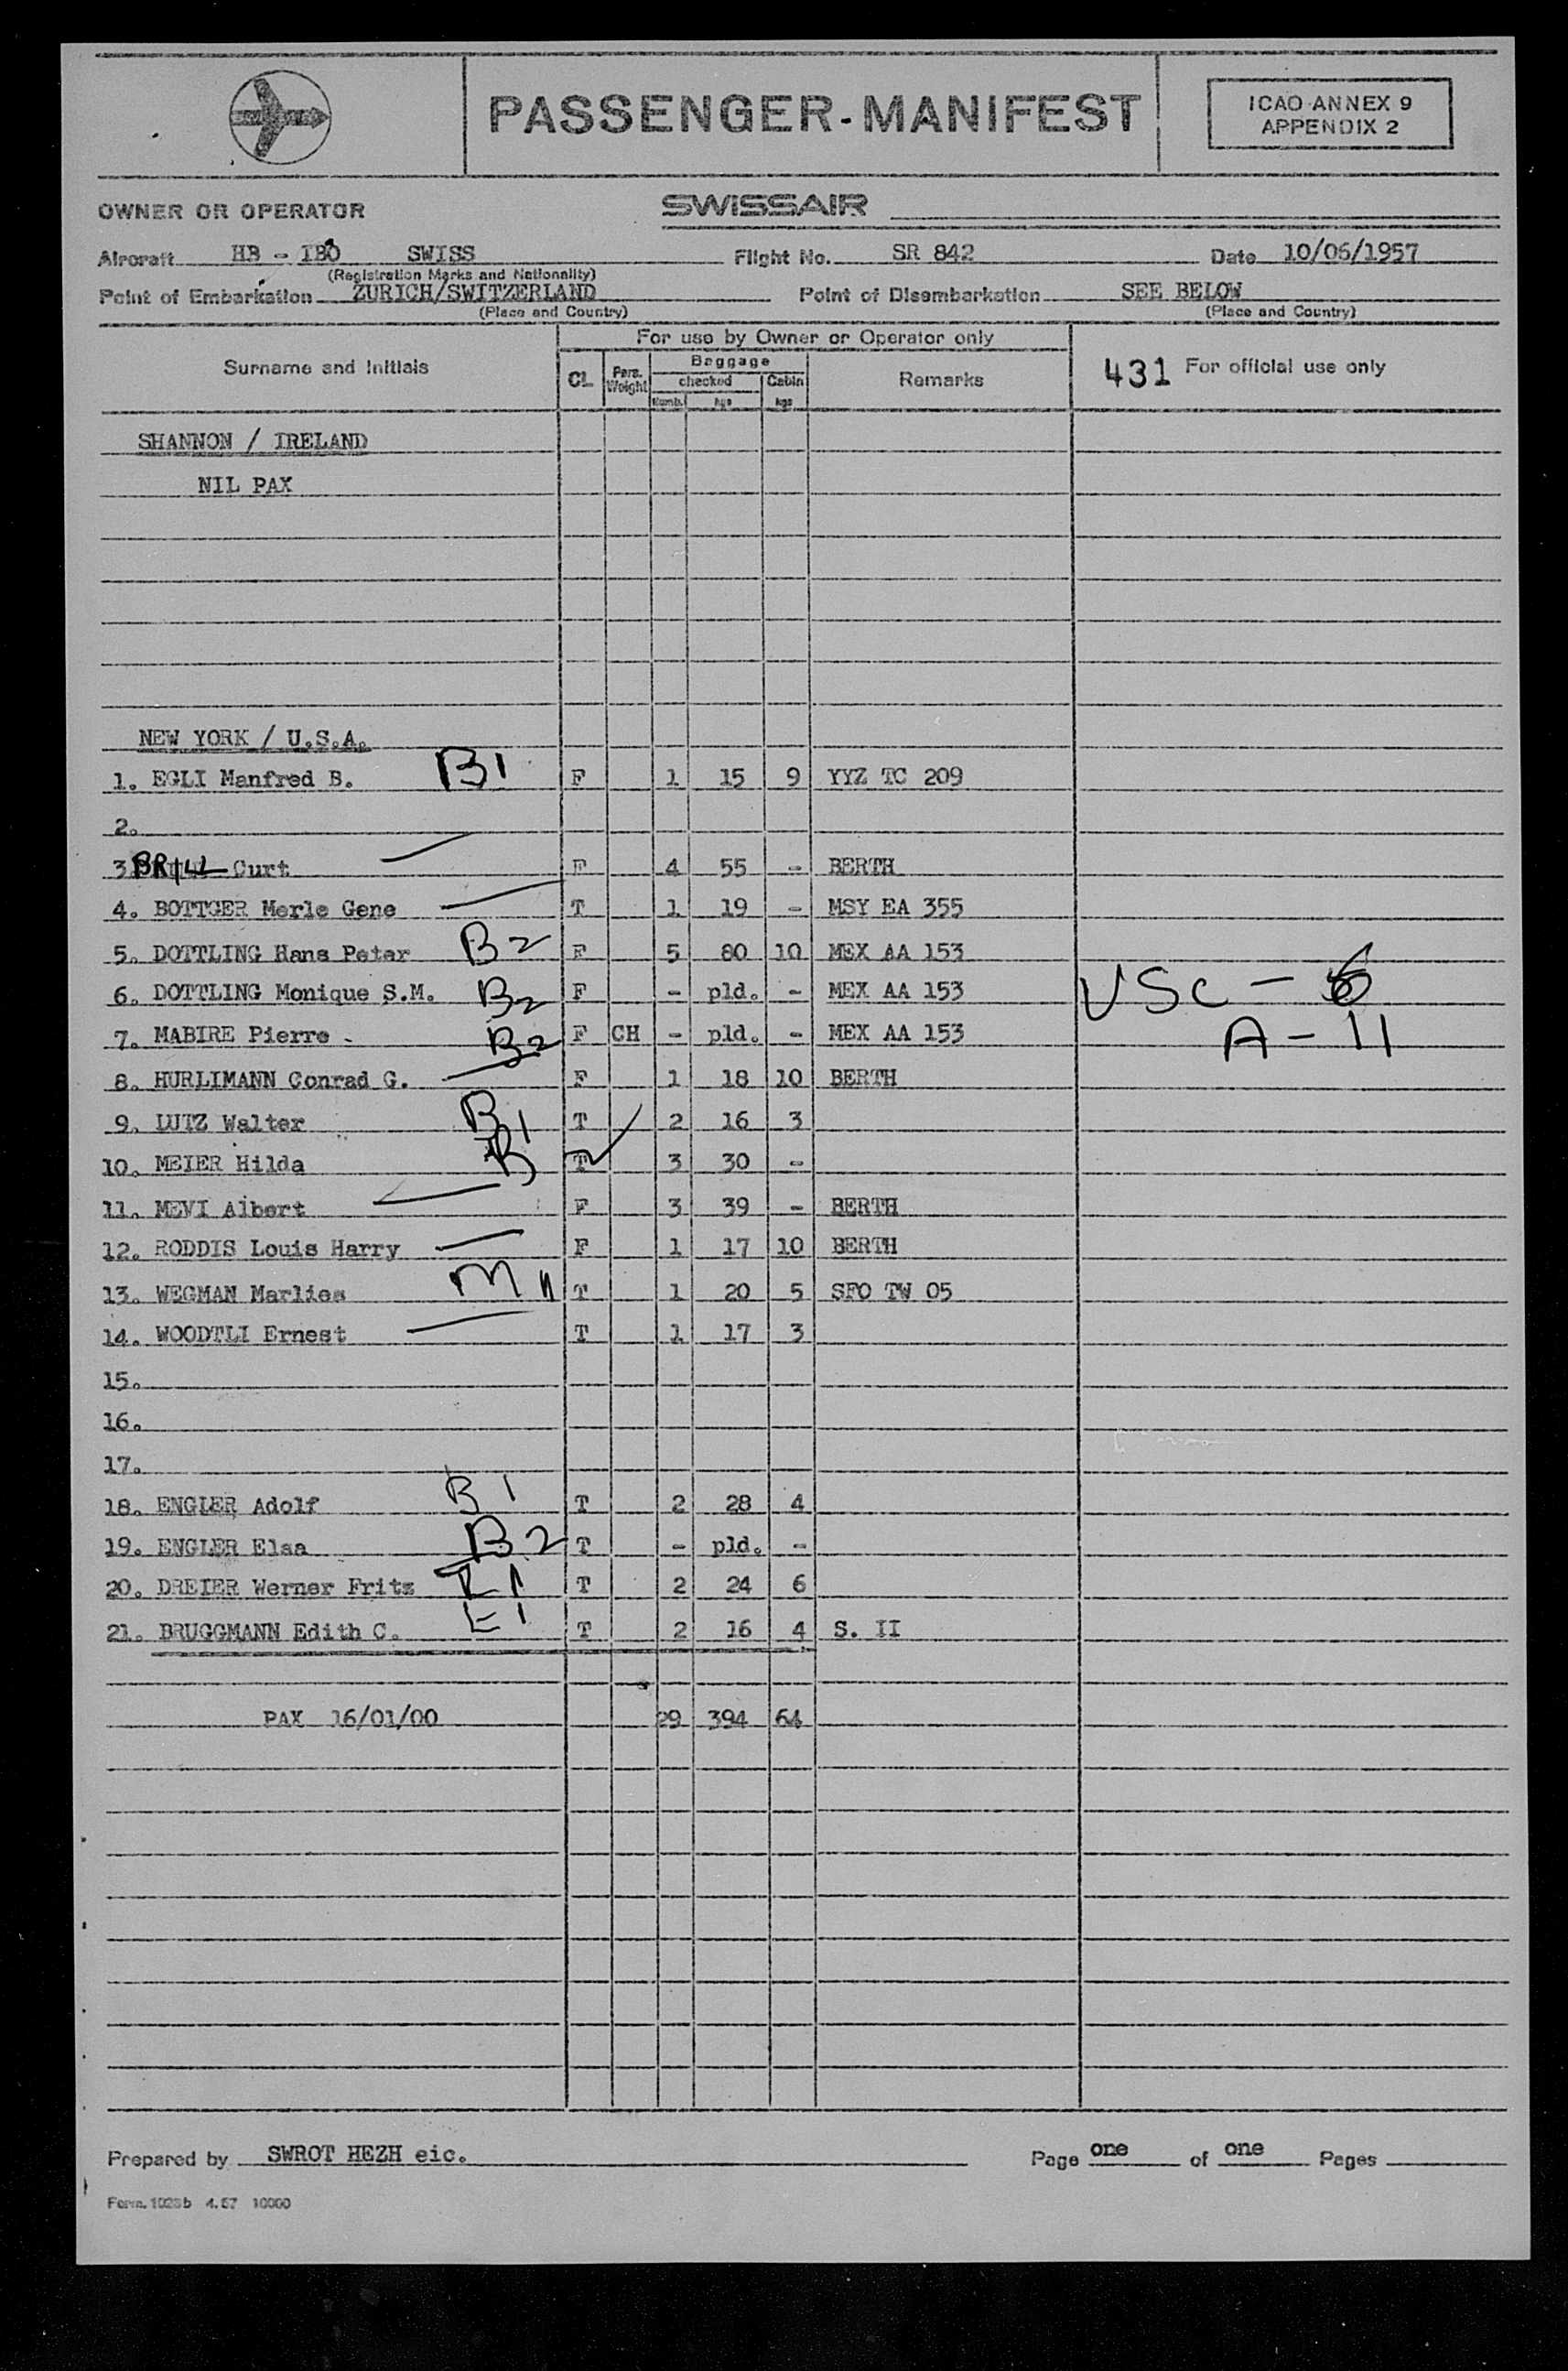 PASSENGER-MANIFEST
ICAO ANNEX 9
APPENDIX 2
OWNER OR OPERATOR SWISSAIR
Aircraft HB - IBO SWISS Flight No. SR 842 Date 10/06/1957
(Registration Marks and Nationality)
Point of Embarkation ZURICH/SWITZERLAND Point of Disembarkation SEE BELOW
(Place and Country) (Place and Country)
For use by Owner or Operator only
Surname and Initials CL Pers. Weight Baggage checked Numb. kgs Cabin kgs Remarks 431 For official use only
SHANNON / IRELAND
NIL PAX
NEW YORK / U.S.A.
1. EGLI Manfred B. B1 F 1 15 9 YYZ TC 209
2.
3. BRILL Curt F 4 55 - BERTH
4. BOTTGER Merle Gene T 1 19 - MSY EA 355
5. DOTTLING Hans Peter B2 F 5 80 10 MEX AA 153
6. DOTTLING Monique S.M. B2 F - pld. - MEX AA 153 USC - 6
7. MABIRE Pierre B2 F CH - pld. - MEX AA 153 A - 11
8. HURLIMANN Conrad G. F 1 18 10 BERTH
9. LUTZ Walter B1 T 2 16 3
10. MEIER Hilda B T 3 30 -
11. MEVI Albert F 3 39 - BERTH
12. RODDIS Louis Harry F 1 17 10 BERTH
13. WEGMAN Marlies M T 1 20 5 SFO TW 05
14. WOODTLI Ernest T 1 17 3
15.
16.
17.
18. ENGLER Adolf B1 T 2 28 4
19. ENGLER Elsa B2 T - pld. -
20. DREIER Werner Fritz T 2 24 6
21. BRUGGMANN Edith C. E1 T 2 16 4 S. II
PAX 16/01/00 29 394 64
Prepared by SWROT HEZH eic. Page one of one Pages
Form. 1023b 4.57 10000